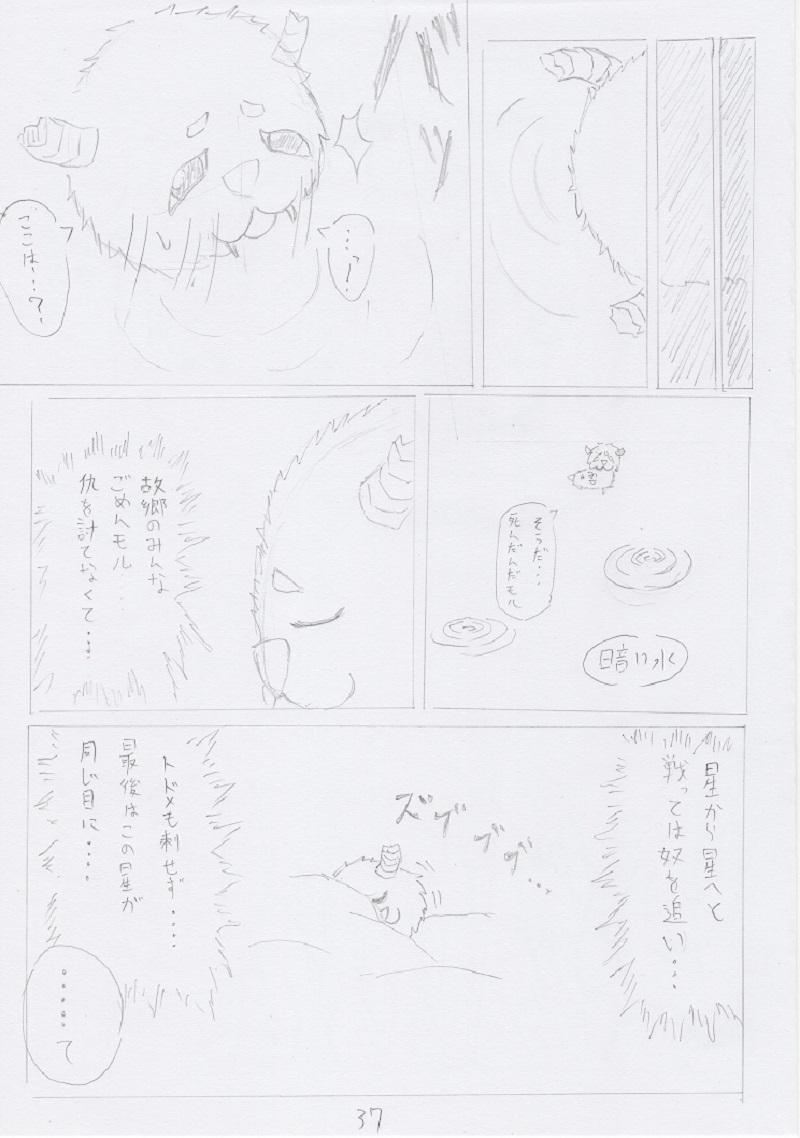 ハッ
…っ！
ここは…？
そうだ…
死んだんだモル
暗い水
故郷のみんな
ごめんモル…
仇を討てなくて…
星から星へと
戦っては奴を追い…
ズブブブ…
トドメも刺せず…
最後はこの星が
同じ目に…
……て
37